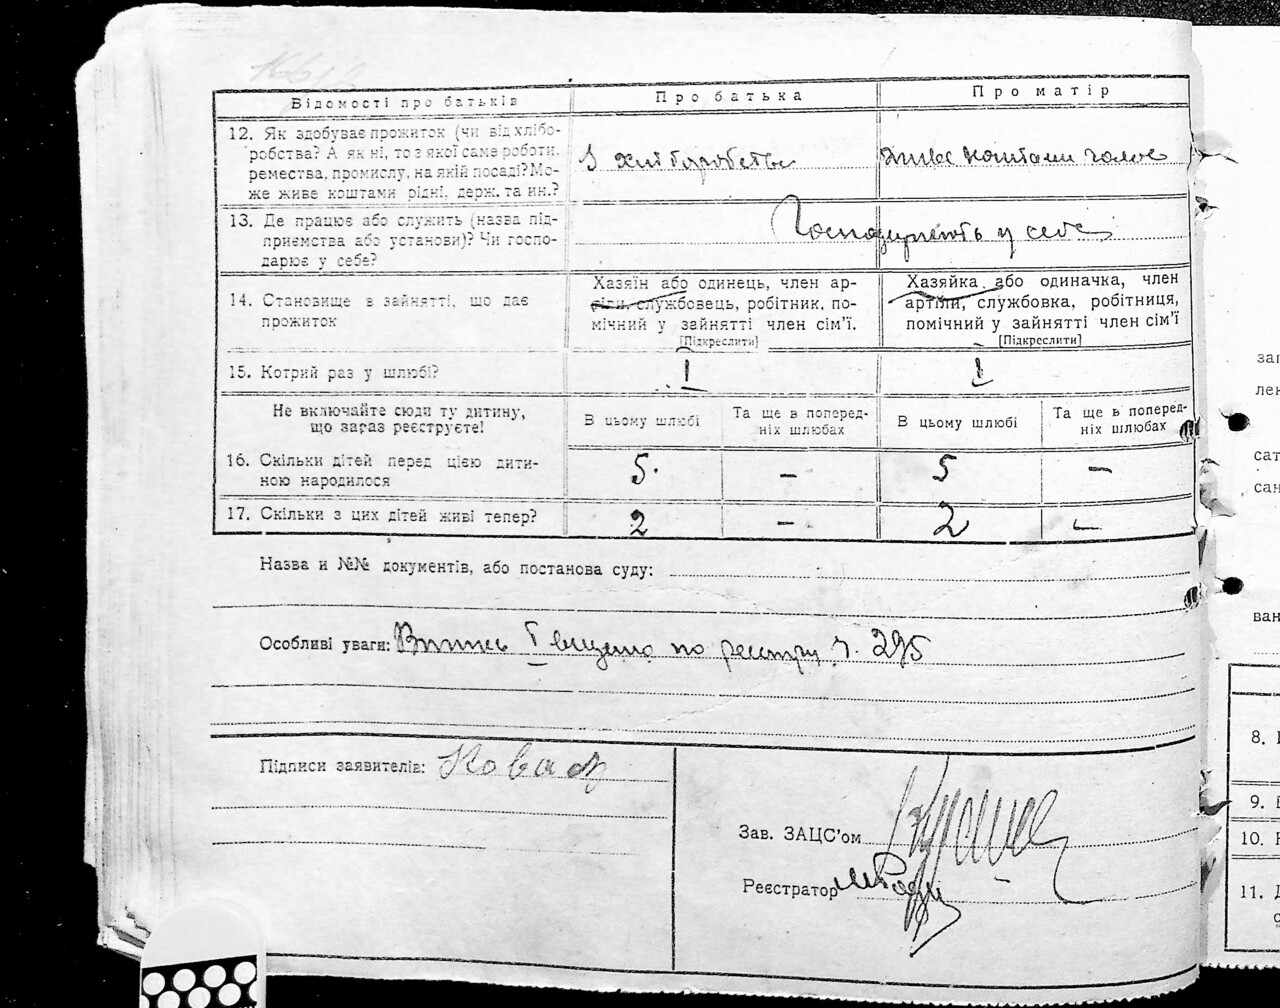 Відомості про батьків
Про батька
Про матір
12. Як здобуває прожиток (чи від хлібо-
робства? А як ні, то з якої саме роботи,
ремества, промислу, на якій посаді? Мо-
же живе коштами рідні, держ. та ин.?
З хліборобства
живе коштами чолов
13. Де працює або служить (назва під-
приємства або установи)? Чи госпо-
дарює у себе?
Господарюють у себе
14. Становище в зайнятті, що дає
прожиток
Хазяїн або одинець, член ар-
тіли, службовець, робітник, по-
мічний у зайнятті член сім'ї.
[Підкреслити]
Хазяйка або одиначка, член
артіли, службовка, робітниця,
помічний у зайнятті член сім'ї
[Підкреслити]
15. Котрий раз у шлюбі?
I
I
Не включайте сюди ту дитину,
що зараз реєструєте!
В цьому шлюбі
Та ще в поперед-
ніх шлюбах
В цьому шлюбі
Та ще в поперед-
ніх шлюбах
16. Скільки дітей перед цією дити-
ною народилося
5. – 5 –
17. Скільки з цих дітей живі тепер?
2 – 2 –
Назва и №№ документів, або постанова суду:
Особливі уваги: Випись I видано по реєстру ч. 295
Підписи заявителів: Ковал
Зав. ЗАЦС'ом
Реєстратор
заг
лен
сат
сан
ван
8.
9.
10.
11.